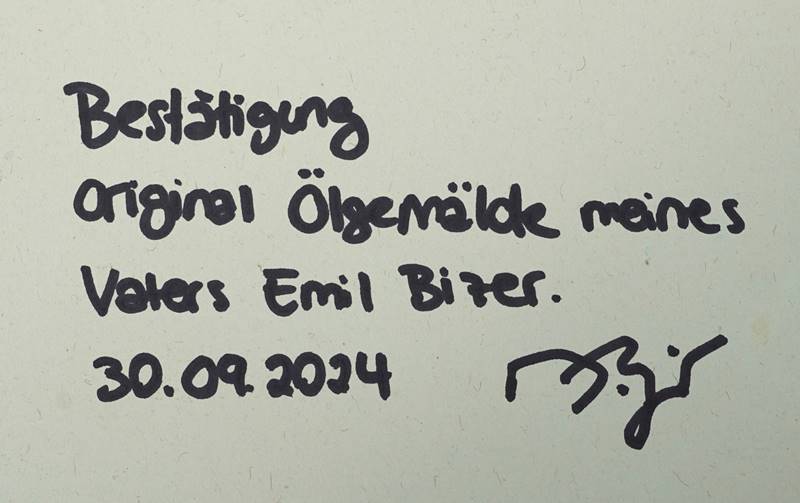 Bestätigung
Original Ölgemälde meines
Vaters Emil Bizer.
30.09.2024